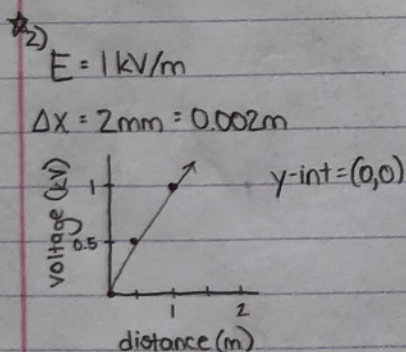 ☆2)
E = 1 kV/m
Δx = 2mm = 0.002m
y-int = (0,0)
voltage (kV)
1
0.5
1 2
distance (m)